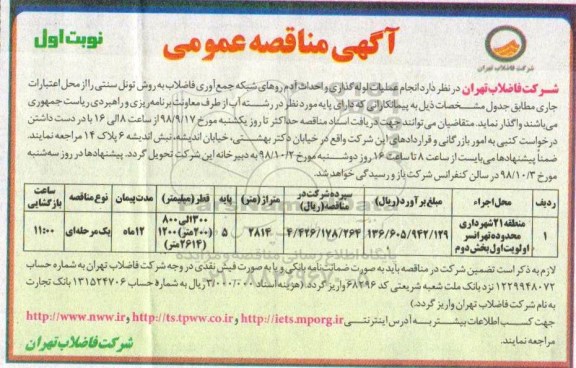 آگهی مناقصه عمومی
نوبت اول
شرکت فاضلاب تهران
شرکت فاضلاب تهران در نظر دارد انجام عملیات لوله گذاری و احداث آدم روهای شبکه جمع آوری فاضلاب به روش تونل سنتی را از محل اعتبارات
جاری مطابق جدول مشخصات ذیل به پیمانکارانی که دارای پایه مورد نظر در رشته آب از طرف معاونت برنامه ریزی و راهبردی ریاست جمهوری
می باشند واگذار نماید. متقاضیان می توانند جهت دریافت اسناد مناقصه حداکثر تا روز یکشنبه مورخ ۹۸/۹/۱۷ از ساعت ۸ الی ۱۶ با در دست داشتن
درخواست کتبی به امور بازرگانی و قراردادهای این شرکت واقع در خیابان دکتر بهشتی، خیابان اندیشه، نبش اندیشه ۶ پلاک ۱۴ مراجعه نمایند.
ضمناً پیشنهادها می بایست از ساعت ۸ تا ساعت ۱۶ روز دوشنبه مورخ ۹۸/۱۰/۲ به دبیرخانه این شرکت تحویل گردد. پیشنهادها در روز سه شنبه
مورخ ۹۸/۱۰/۳ در سالن کنفرانس شرکت باز و رسیدگی خواهد شد.
ردیف محل اجراء مبلغ برآورد (ریال) سپرده شرکت در مناقصه (ریال) متراژ (متر) پایه قطر (میلیمتر) مدت پیمان نوع مناقصه ساعت بازگشایی
۱ منطقه ۲۱ شهرداری محدوده تهرانسر اولویت اول بخش دوم ۱۳۶/۶۰۵/۹۴۲/۱۲۹ ۴/۴۲۶/۱۷۸/۲۶۴ ۲۸۱۴ ۵ ۳۰۰ الی ۸۰۰ (۲۰۰ متر) ۱۲۰۰ (۲۶۱۴ متر) ۱۲ ماه یک مرحله ای ۱۱:۰۰
لازم به ذکر است تضمین شرکت در مناقصه باید به صورت ضمانت نامه بانکی و یا به صورت فیش نقدی در وجه شرکت فاضلاب تهران به شماره حساب
۱۲۲۹۹۴۸۰۷۲ نزد بانک ملت شعبه شریعتی کد ۶۸۲۹۶ واریز گردد. (هزینه اسناد ۳/۰۰۰/۰۰۰ ریال به شماره حساب ۱۳۱۵۲۴۷۰۶ بانک تجارت
به نام شرکت فاضلاب تهران واریز گردد.)
جهت کسب اطلاعات بیشتر به آدرس اینترنتی http://iets.mporg.ir و http://ts.tpww.co.ir و http://www.nww.ir
مراجعه نمایند.
شرکت فاضلاب تهران